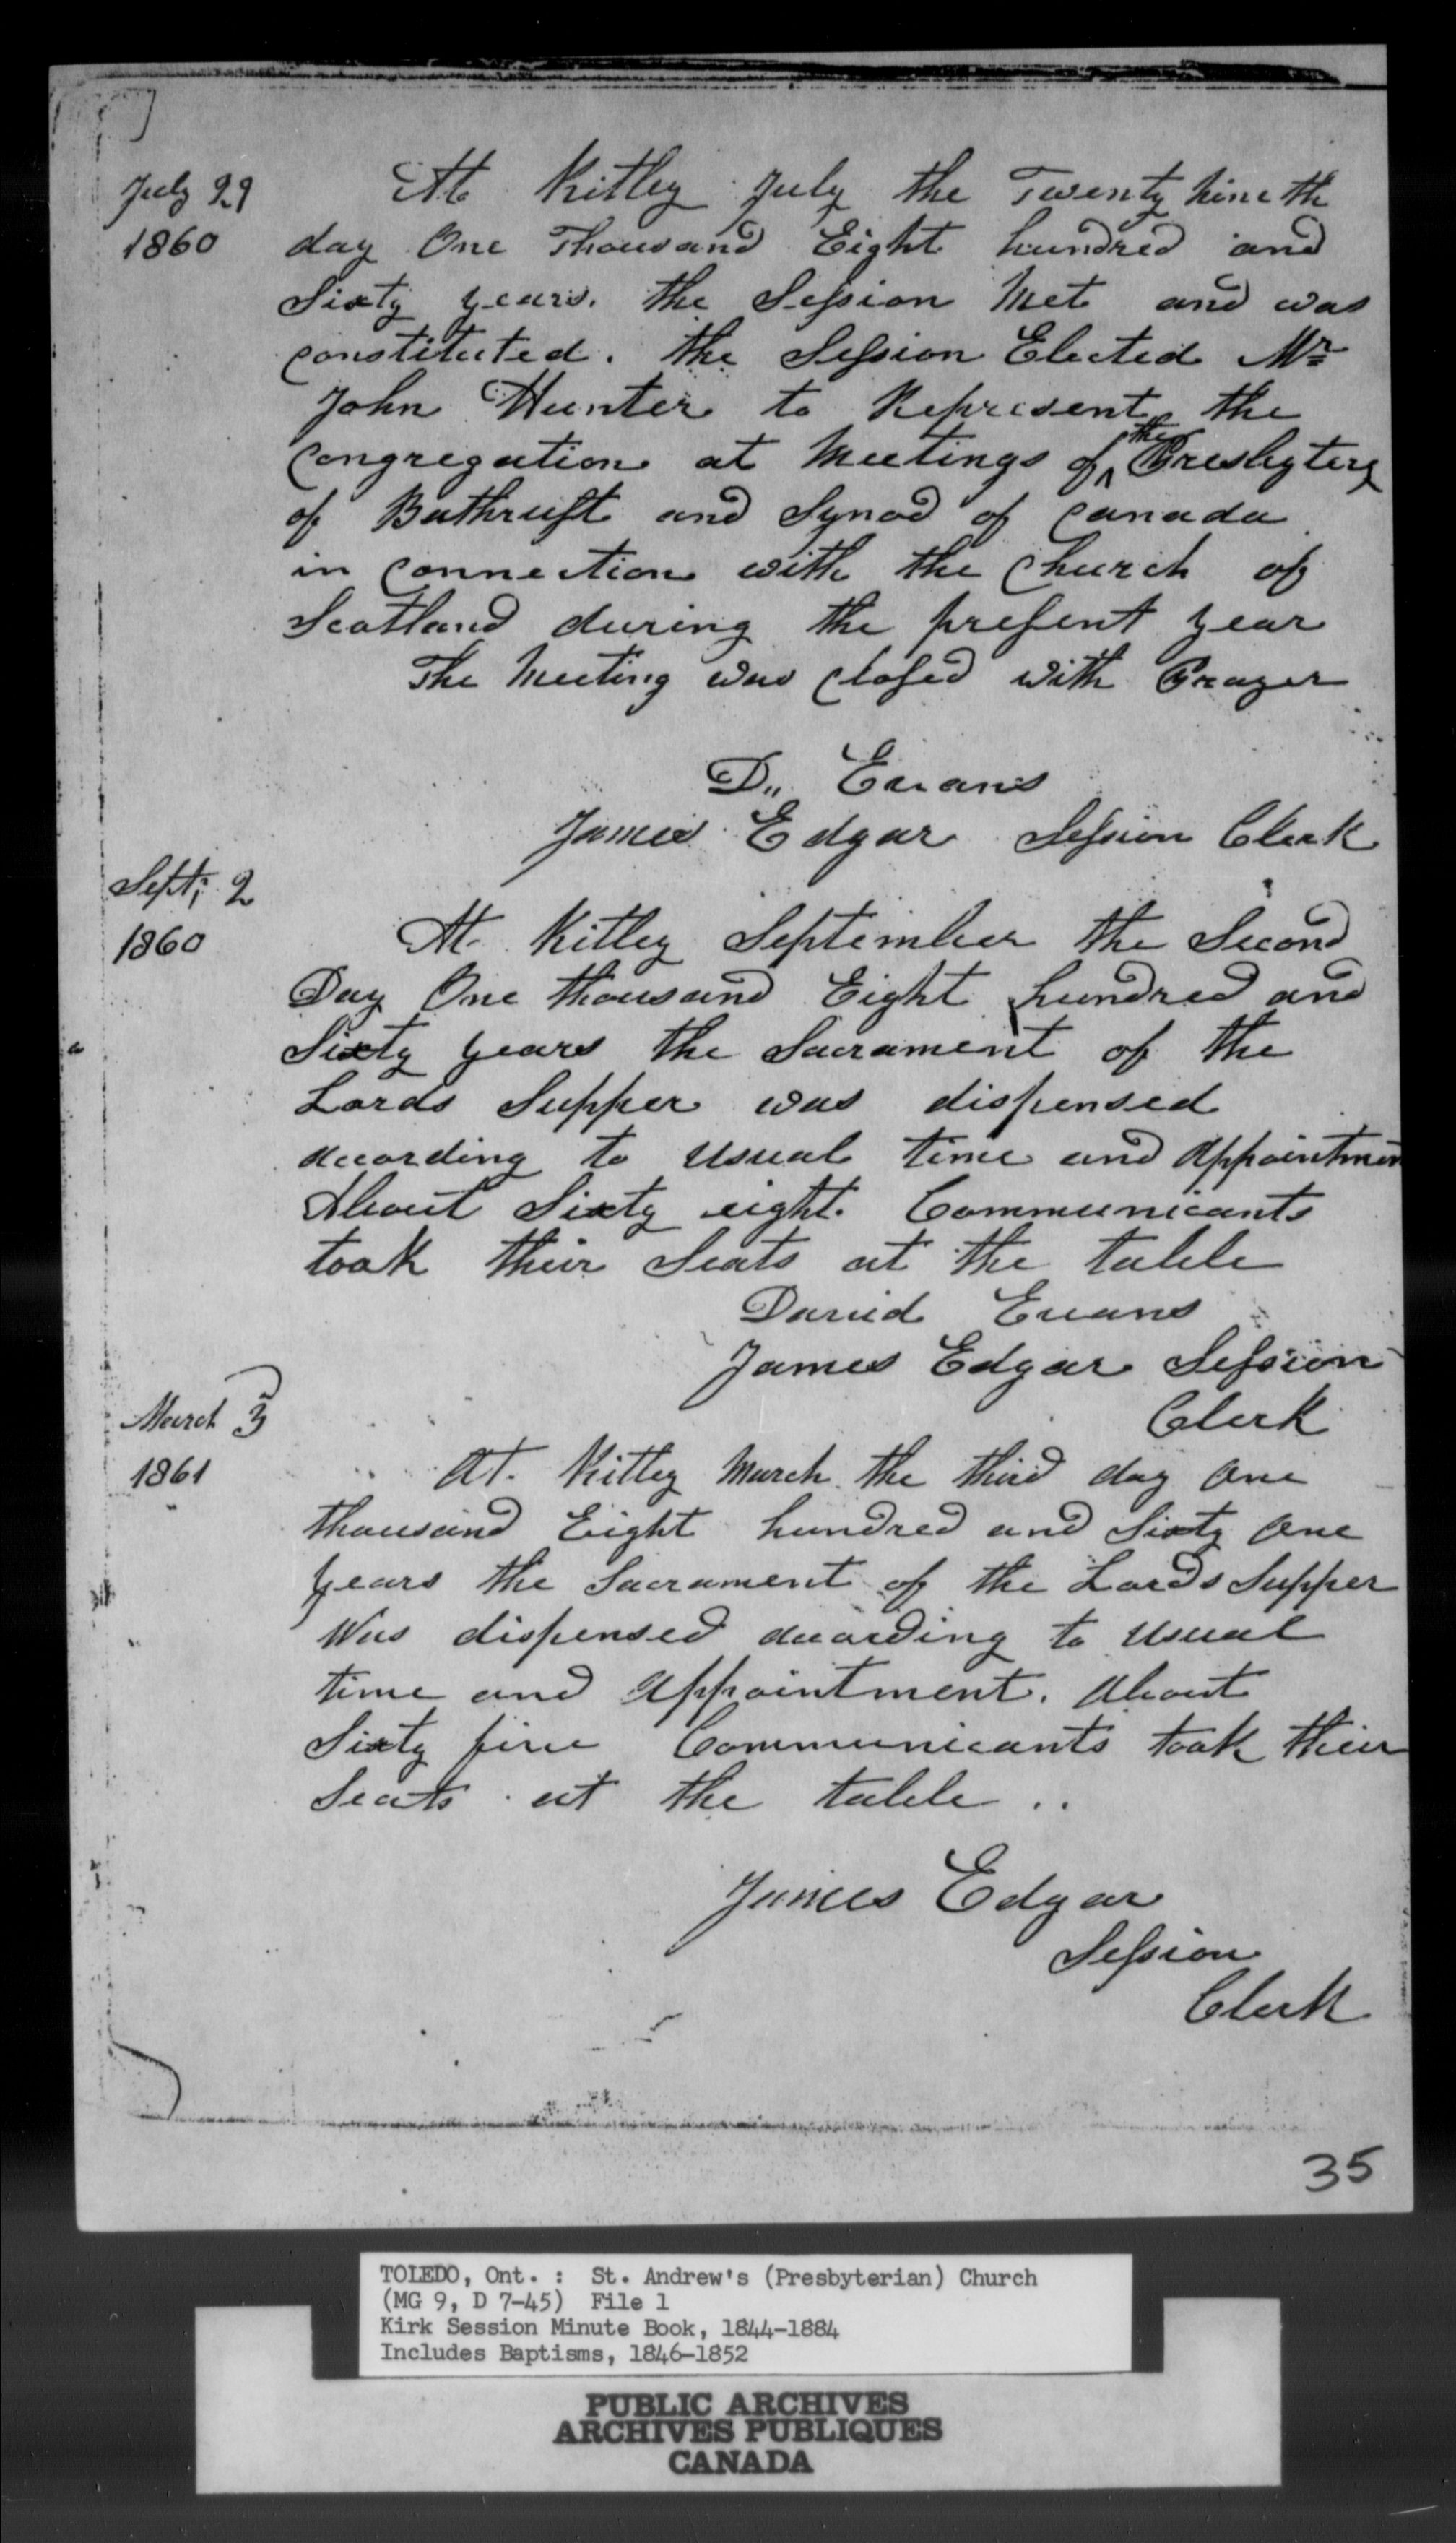 July 29
1860
At Kitley July the Twenty nineth
day One Thousand Eight hundred and
Sixty years. the Session Met and was
constituted. the Session Elected Mr
John Hunter to Represent the
Congregation at Meetings of the Presbytery
of Bathrust and Synod of Canada
in connection with the Church of
Scotland during the present year
The Meeting was closed with Prayer
D,, Evans
James Edgar Session Clerk
Sept; 2
1860
At Kitley September the Second
Day One thousand Eight hundred and
Sixty years the Sacrament of the
Lords Supper was dispensed
according to usual time and appointmen
About Sixty eight Communicants
took their Seats at the table
David Evans
James Edgar Session
Clerk
March 3
1861
At Kitley March the third day One
thousand Eight hundred and Sixty One
years the Sacrament of the Lords Supper
Was dispensed according to usual
time and appointment. About
Sixty five Communicants took their
Seats at the table ..
James Edgar
Session
Clerk
35
TOLEDO, Ont. : St. Andrew's (Presbyterian) Church
(MG 9, D 7-45) File 1
Kirk Session Minute Book, 1844-1884
Includes Baptisms, 1846-1852
PUBLIC ARCHIVES
ARCHIVES PUBLIQUES
CANADA